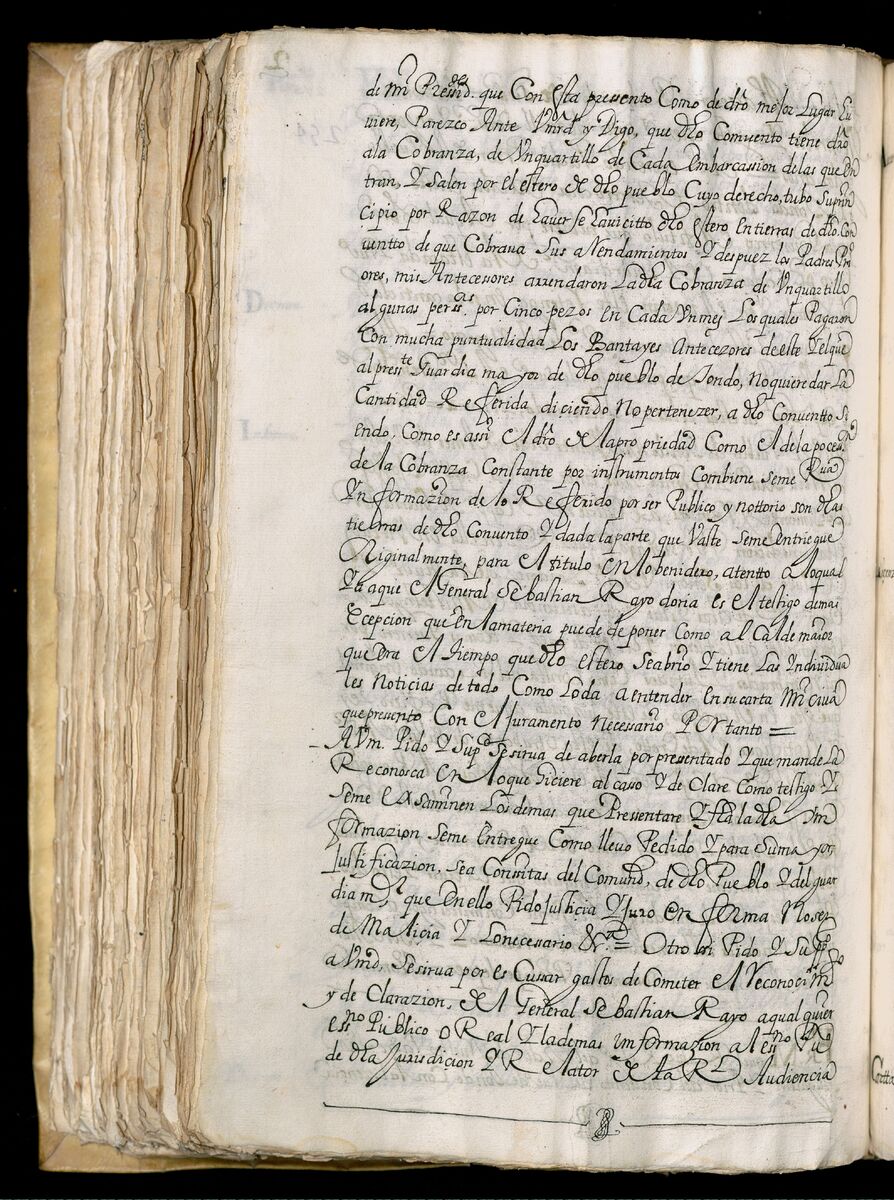 de mi Pressid.ª que Con esta presento Como de dro mejor Lugar hu
viere, Parezco Ante Vmrd y Digo, que dho Comvento tiene dro
ala Cobranza, de Vnquartillo de Cada embarcassion delas que En
tran, Y Salen por el estero de dho pueblo Cuyo derecho, tubo Suprin
Cipio por Razon de haver se havierto dho estero En tierras de dho. Con
ventto de que Cobraua Sus aRendamientos Y despuez los Padres Pri
ores, mis Antecessores arrendaron La dha Cobranza de Vnquartillo
algunas perss.as por Cinco pezos en Cada Vn mes Los quales Pagaron
Con mucha puntualidad Los Bantayes Antecezores de este Y el que
al press.te Guardia mayor de dho pueblo de Tondo, No quieren dar La
Cantidad Referida diciendo No pertenezer, a dho Conventto Si
endo, Como es assi el dro de la propriedad Como el de la poces.on
de la Cobranza Constante por instrumentos Combiene seme
Ynformazion de lo Referido por ser Publico y nottorio son dhas
tierras de dho Convento Y dada la parte que Vaste Seme Entriegue
Originalmente, para el titulo En lo benidero, atentto a lo qual
Ya que el General Sebasthian Rayo doria es el testigo demas
Ecepcion que en la materia puede de poner Como alCalde maior
que Era el tiempo que dho estero Se abrio Y tiene Las Yndividua
les Noticias de todo Como lo da a entender en su carta
que presento Con el Juramento Necessario POr tanto =
A Vm. Pido Y Sup.co Se sirua de aberla por presentado Y que mande La
Reconosca En lo que hiciere al casso Y de Clare Como testigo Y
Seme Exsaminen Los demas que Pressentare Y fha la dha Yn
formazion Seme Entregue Como lleuo Pedido Y para Suma yor
Justificazion, sea Con sitas del Comund, de dho Pueblo Y del guar
dia m.or que En ello Pido Justicia Y Juro En forma No ser
de Malicia Y Lo necessario &.ª = Otro si Pido Y Supp.co
a Vmd, Se sirua por es Cussar gastos de Cometer el Reconocim.to
y de Clarazion, de el General Sebasthian Rayo a qual quier
ess.no Publico o Real Y la demas informazion al ess.no Pu.co
de dha Jurisdicion Y Relator de la R.l Audiencia